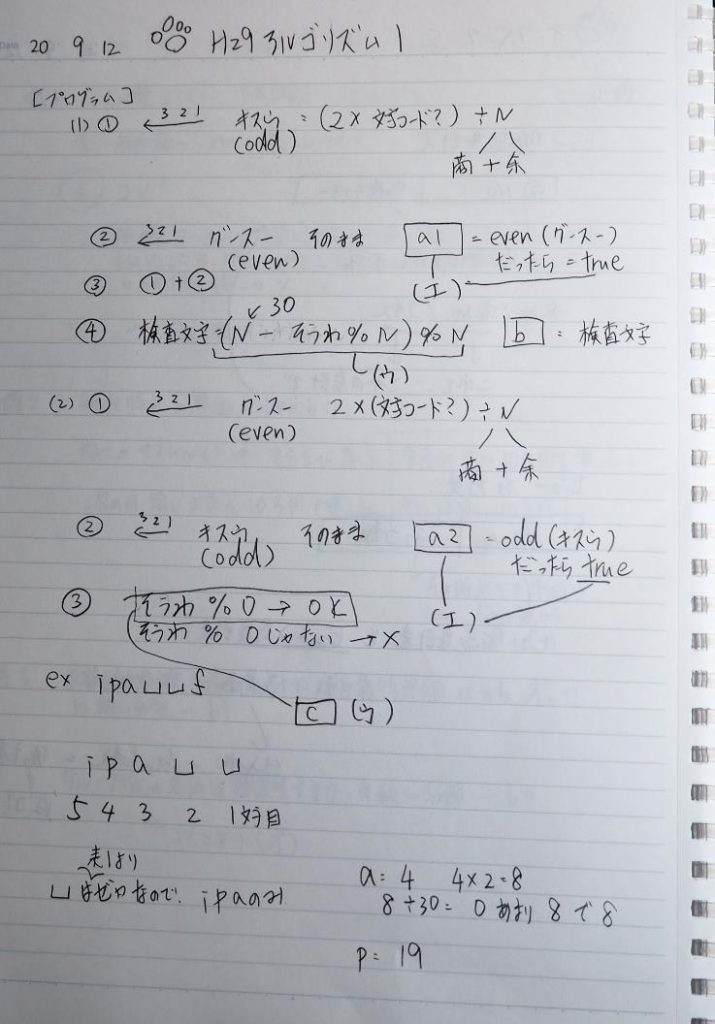 20 9 12 H29 アルゴリズム 1
[プログラム]
(1) ① ← 3 2 1 キスウ = (2 × 文字コード?) ÷ N
(odd)
商 + 余
② ← 3 2 1 グースー そのまま a1 = even (グースー)
(even) だったら = true
③ ① + ② (エ)
30
④ 検査文字 = (N - そうわ % N) % N b = 検査文字
(ウ)
(2) ① ← 3 2 1 グースー 2 × (文字コード?) ÷ N
(even)
商 + 余
② ← 3 2 1 キスウ そのまま a2 = odd (キスウ)
(odd) だったら true
(エ)
③ そうわ % 0 → OK
そうわ % 0 じゃない → ×
ex ipa␣␣f
c (ウ)
i p a ␣ ␣
5 4 3 2 1文字目
表1より
␣はゼロなので、ipaのみ
a = 4 4×2=8
8÷30= 0 あまり 8 で 8
p = 19